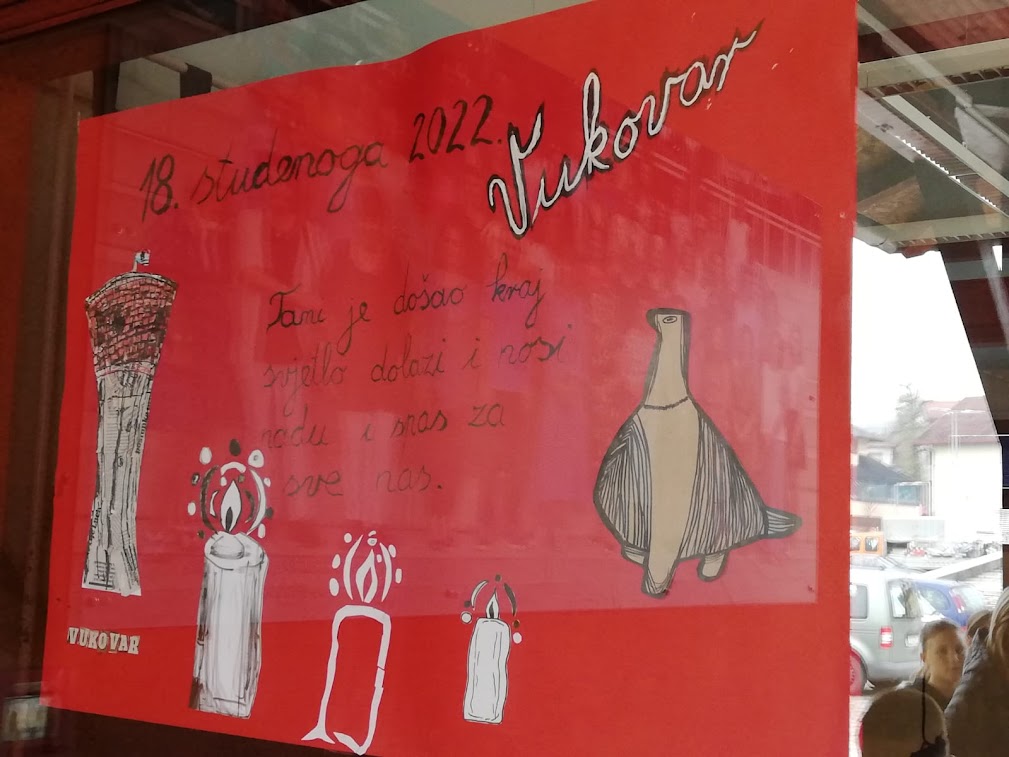 18. studenoga 2022. Vukovar
Tami je došao kraj
svjetlo dolazi i nosi
nadu i spas za
sve nas.
VUKOVAR